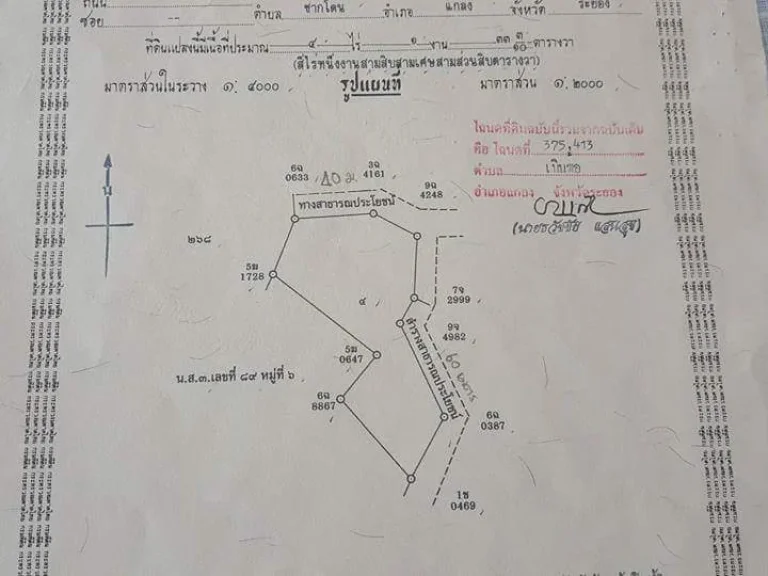 ซอย -- ตำบล ชากโดน อำเภอ แกลง จังหวัด ระยอง
ที่ดินแปลงนี้มีเนื้อที่ประมาณ ๔ ไร่ ๑ งาน ๓๓ ๓/๑๐ ตารางวา
(สี่ไร่หนึ่งงานสามสิบสามเศษสามส่วนสิบตารางวา)
มาตราส่วนในระวาง ๑: ๔๐๐๐ รูปแผนที่ มาตราส่วน ๑: ๒๐๐๐
โฉนดที่ดินฉบับนี้รวมจากฉบับเดิม
คือ โฉนดที่ 375,413
ตำบล
อำเภอแกลง จังหวัดระยอง
6ฉ
0633
10 ม
3ฉ
4161
9ฉ
4248
ทางสาธารณประโยชน์
๒๖๘
5ม
1728
๔
7จ
2999
9จ
4982
ลำรางสาธารณประโยชน์
60 เมตร
5ม
0647
น.ส.๓.เลขที่ ๘๙ หมู่ที่ ๖
6ฉ
8867
6ฉ
0387
1ช
0469